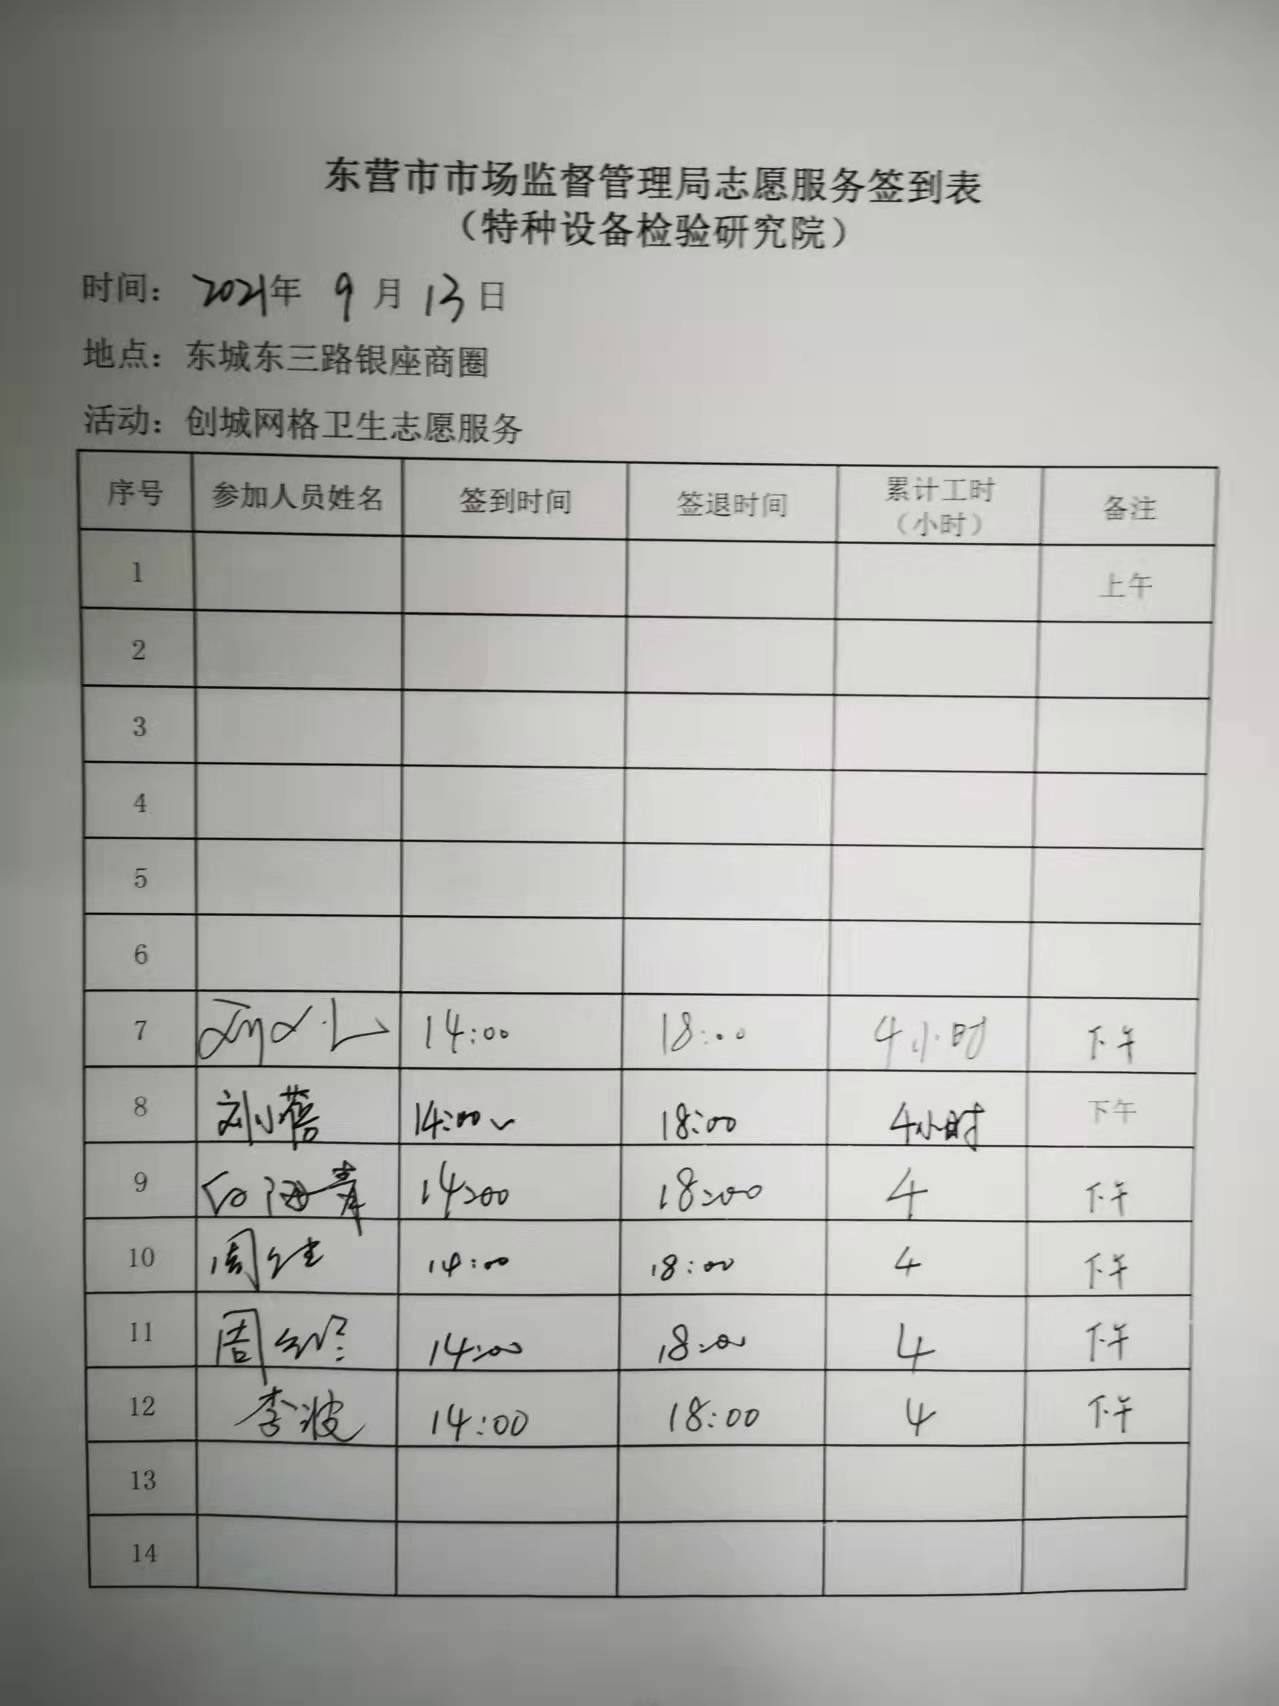 东营市市场监督管理局志愿服务签到表
（特种设备检验研究院）
时间：2021年 9月13日
地点：东城东三路银座商圈
活动：创城网格卫生志愿服务
序号 参加人员姓名 签到时间 签退时间 累计工时（小时） 备注
1 上午
2
3
4
5
6
7 14:00 18:00 4小时 下午
8 刘小蓓 14:00 18:00 4小时 下午
9 14:00 18:00 4 下午
10 周 14:00 18:00 4 下午
11 周 14:00 18:00 4 下午
12 李波 14:00 18:00 4 下午
13
14